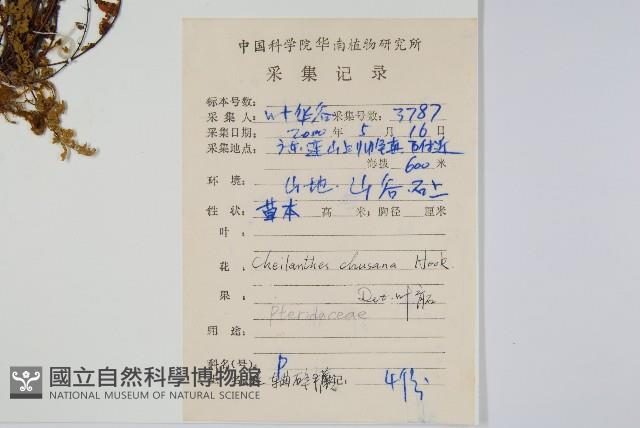 中国科学院华南植物研究所
采集记录
标本号数:
采集人: 叶华谷 采集号数: 3787
采集日期: 2000年5月16日
采集地点: 广东连山上帅
海拔 600 米
环境: 山地.山谷.石上
性状: 草本 高 米; 胸径 厘米
叶:
花: Cheilanthes chusana Hook.
果: Det. 叶
Pteridaceae
用途:
科名(号) P
记: 4份
國立自然科學博物館
NATIONAL MUSEUM OF NATURAL SCIENCE